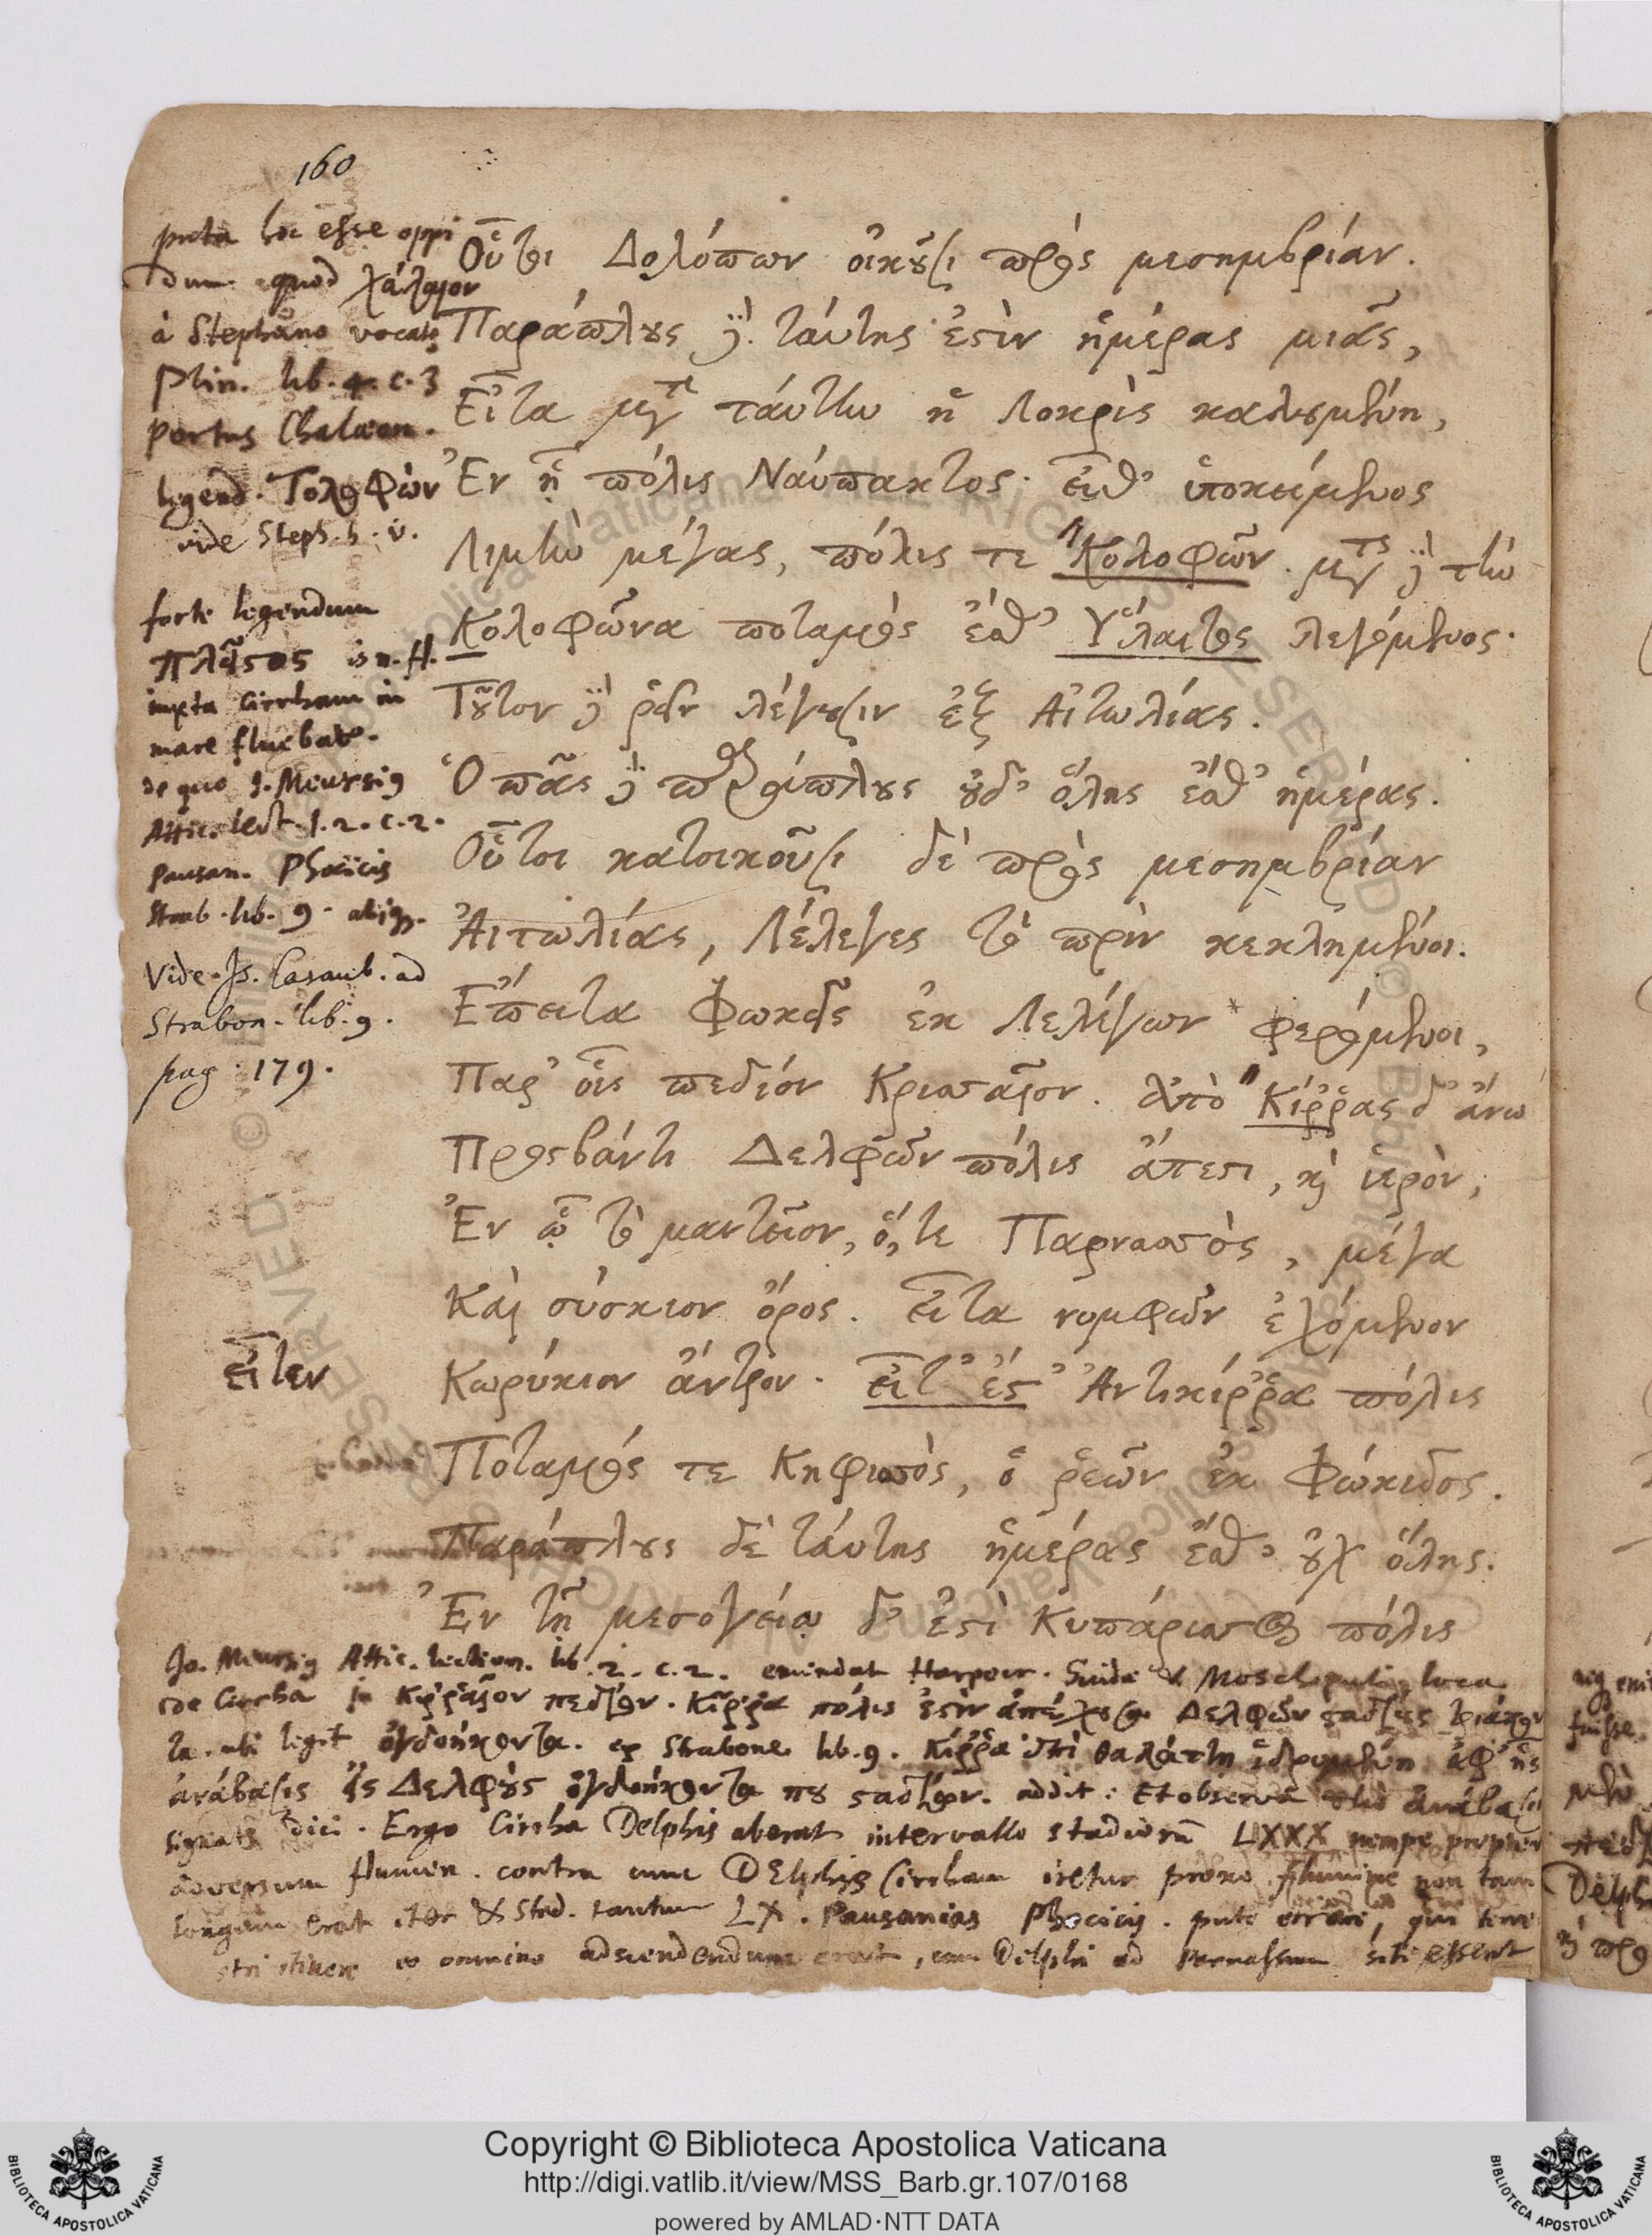 160
puta hic esse oppi
dum quod χάλαιον
à Stephano vocatur
Plin. lib. 4. c. 3
portus Chalaeon.
legend. Τολοφὼν
vide Steph. h. v.
forte legendum
Πλεῖστος is n. fl.
iuxta Cirrham in
mare fluebat.
de quo J. Meursius
Attic. lect. l. 2. c. 2.
Pausan. Phocicis
Strab. lib. 9.
Vide Is. Casaub. ad
Strabon. lib. 9.
pag. 179.
εἶτεν
Οὗτοι Δολόπων οἰκοῦσι πρὸς μεσημβρίαν.
Παράπλους δὲ ταύτης ἐστὶν ἡμέρας μιᾶς,
Εἶτα μετὰ ταύτην ἡ Λοκρὶς καλουμένη,
Ἐν ᾗ πόλις Ναύπακτος. εἶθ' ὑποκείμενος
Λιμὴν μέγας, πόλις τε Κολοφῶν. μετὰ δὲ τὴν
Κολοφῶνα ποταμός ἐσθ' Ὕλαιθος λεγόμενος.
Τοῦτον δὲ ῥεῖν λέγουσιν ἐξ Αἰτωλίας.
Ὁ πᾶς δὲ παράπλους οὐδ' ὅλης ἐσθ' ἡμέρας.
Οὗτοι κατοικοῦσι δὲ πρὸς μεσημβρίαν
Αἰτωλίας, Λέλεγες τὸ πρὶν κεκλημένοι.
Ἔπειτα Φωκεῖς ἐκ Λελέγων φερόμενοι,
Παρ' οἷς πεδίον Κρισσαῖον. ἀπὸ Κίῤῥας δ' ἄνω
Προσβάντι Δελφῶν πόλις ἄπεστι, καὶ ἱερὸν,
Ἐν ᾧ τὸ μαντεῖον, ὅ,τε Παρνασσὸς, μέγα
Καὶ σύσκιον ὄρος. εἶτα νυμφῶν ἐχόμενον
Κωρύκιον ἄντρον. εἶτ' ἐς Ἀντικίῤῥα πόλις
Ποταμός τε Κηφισσὸς, ὁ ῥεῶν ἐκ Φώκιδος.
Παράπλους δὲ ταύτης ἡμέρας ἔσθ' οὐχ ὅλης.
Ἐν τῇ μεσογείῳ δ' ἐστὶ Κυπάρισσος πόλις
Jo. Meursius Attic. lection. lib. 2. c. 2. emendat Harpocr. Suidae & Moschopuli loca
de Cirrha Κιῤῥαῖον πεδίον. Κίῤῥα πόλις ἐστὶν ἀπέχουσα Δελφῶν σταδίους τριάκον
τα. ubi legit ὀγδοήκοντα. ex Strabone lib. 9. Κίῤῥα ἐπὶ θαλάττῃ ἱδρυμένη ἀφ' ἧς
ἀνάβασις εἰς Δελφοὺς ὀγδοήκοντα που σταδίων. addit: Et observa τὴν ἀνάβασιν
dici. Ergo Cirrha Delphis aberat intervallo stadiorū LXXX nempe propter
adversum flumen. contra cum Delphis Cirrham iretur prono flumine non tam
longum erat iter & stad. tantum LX. Pausanias Phocicis. puto errare, qui terre
stri itinere eo omnino adscendendum erat, cum Delphi ad Parnassum siti essent
Copyright © Biblioteca Apostolica Vaticana
http://digi.vatlib.it/view/MSS_Barb.gr.107/0168
powered by AMLAD·NTT DATA